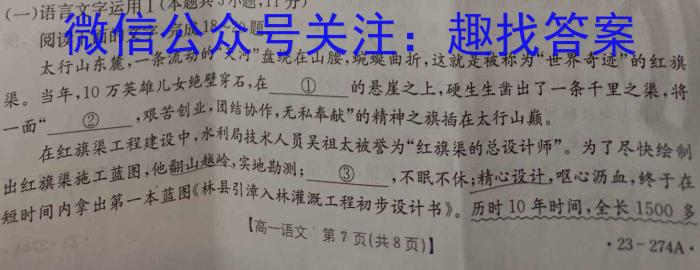 (一)语言文字运用Ⅰ(本题共3小题,11分)
微信公众号关注:趣找答案
阅读下面的文字,完成18~20题。
太行山东麓,一条流动的“天河”盘绕在山腰,蜿蜒曲折,这就是被称为“世界奇迹”的红旗
渠。当年,10万英雄儿女绝壁穿石,在 ① 的悬崖之上,硬生生凿出了一条千里之渠,将
一面“ ② ,艰苦创业,团结协作,无私奉献”的精神之旗插在太行山巅。
在红旗渠工程建设中,水利局技术人员吴祖太被誉为“红旗渠的总设计师”。为了尽快绘制
出红旗渠施工蓝图,他翻山越岭,实地勘测; ③ ,不眠不休;精心设计,呕心沥血,终于在
短时间内拿出第一本蓝图《林县引漳入林灌溉工程初步设计书》。历时10年时间,全长1500多
【高一语文 第7页(共8页)】
·23-274A·